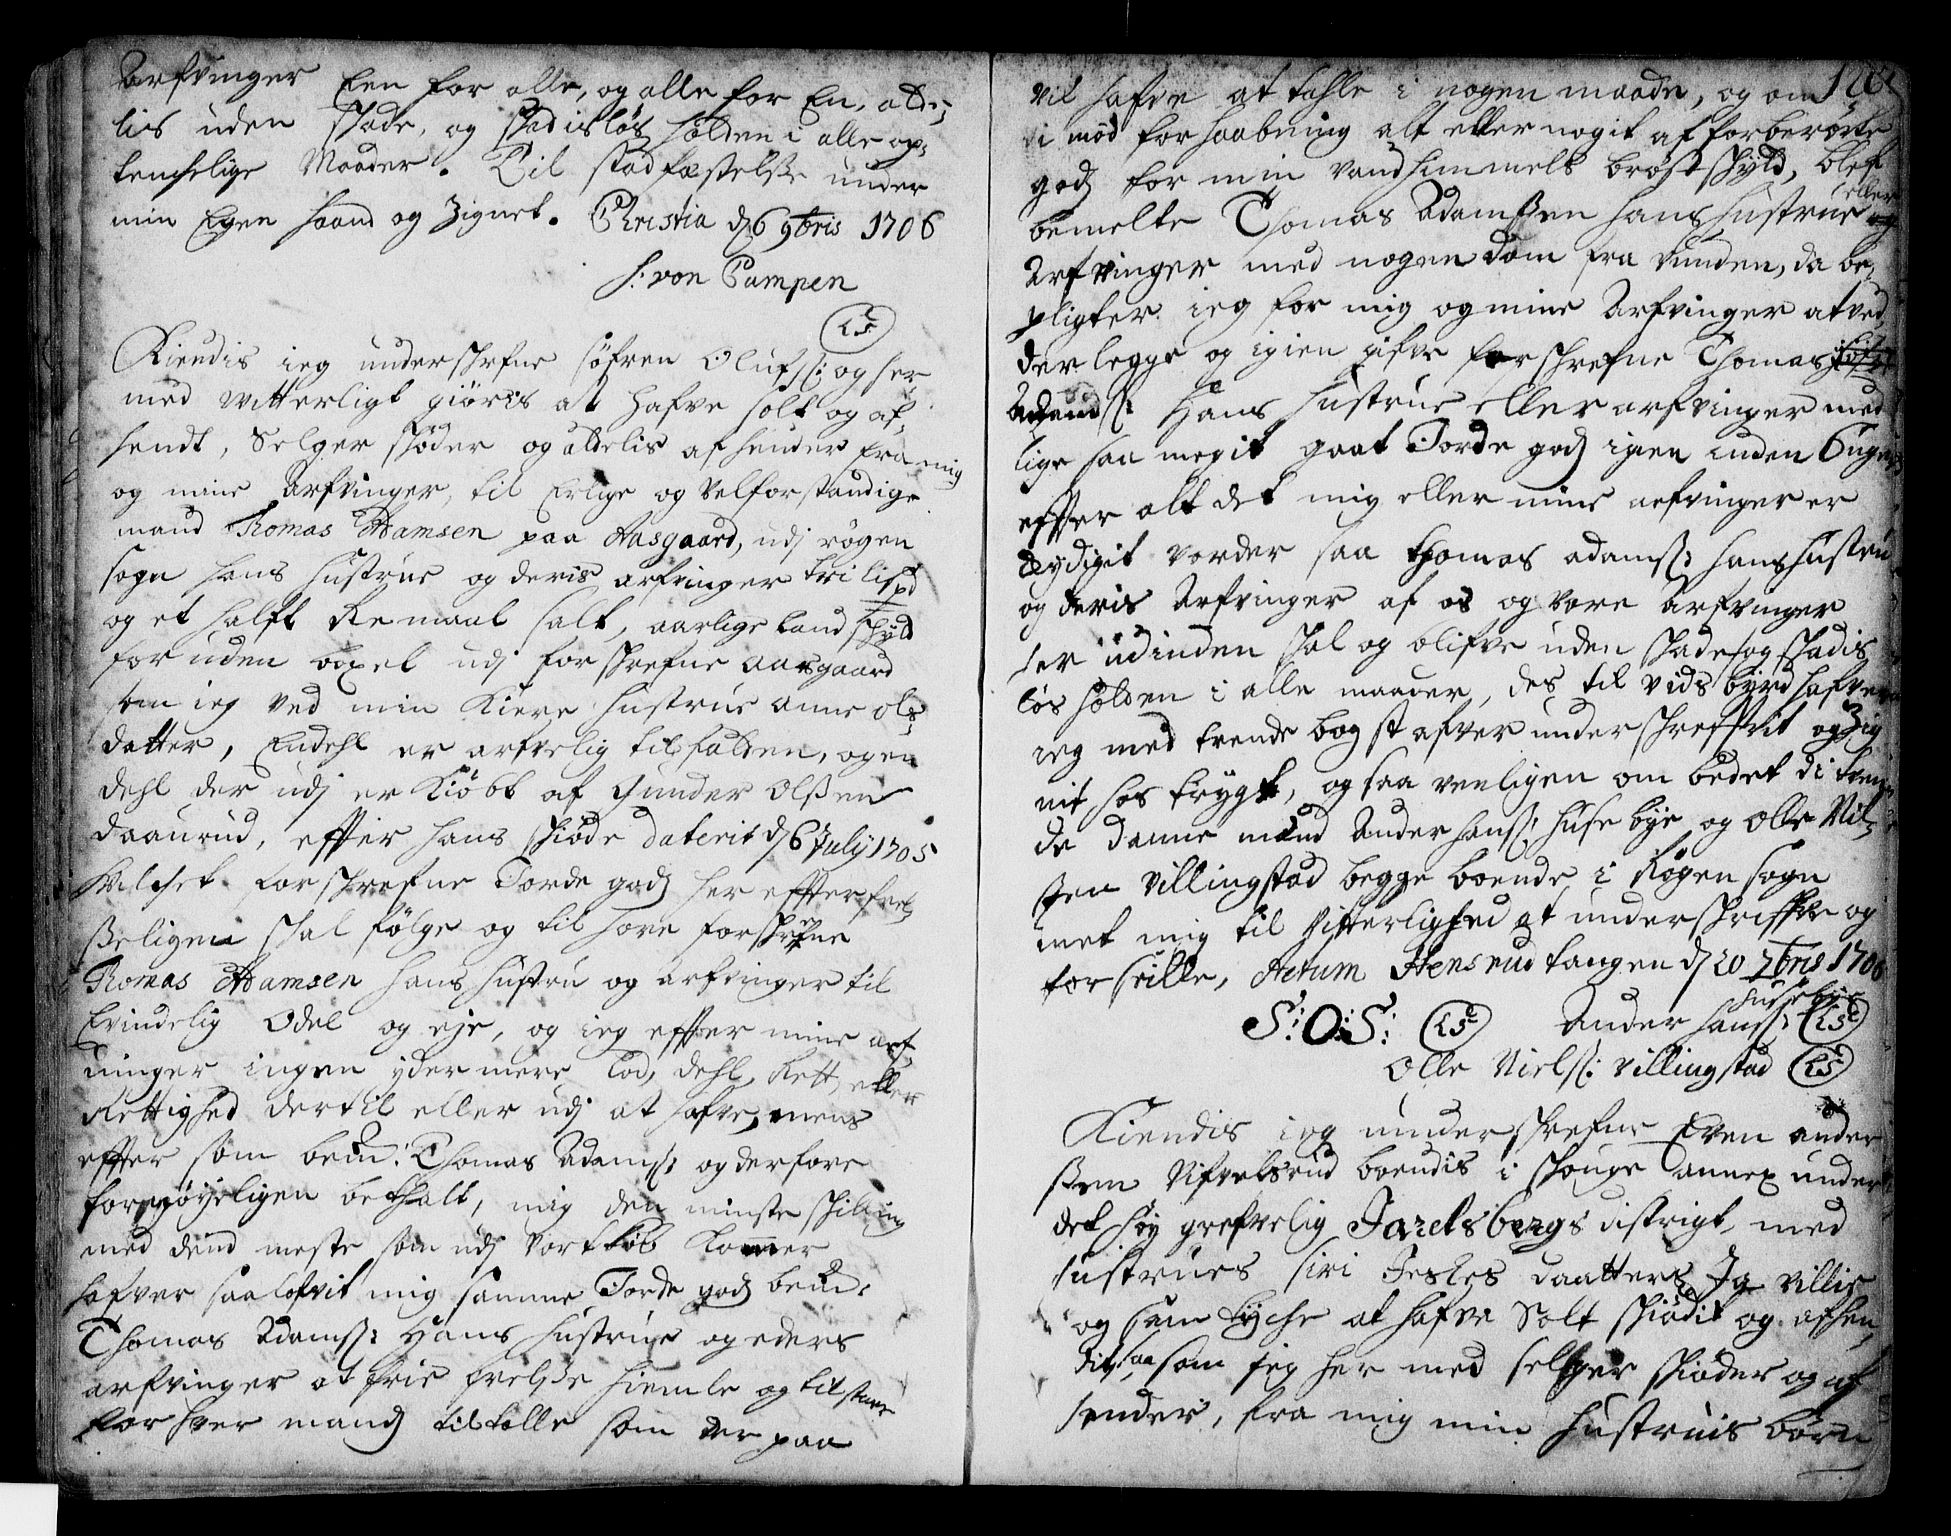 Arfvinger Een for alle, og alle for En, alde,
lis uden skade, og skadisløs holden i alle op,
tenchelige Maader. Til stadfæstelsse under
min Egen haand og Zignet. Christia dj 6 9bris 1706
J: von Pampen
LS
Kiendis ieg underschrefne søfren Olufs: og her
med witterligt giøris at hafve solt og af,
hendt, Selger skøder og aldelis afhender fra mig
og mine Arfvinger, til Erlige og velforstandige
mand Thomas Adamsen paa Aasgaard, udj røgen
sogn hans hustrue og deris arfvinger tri lispd
og et halft Remaal salt, aarlige landskyld
foruden boxel udj forschrefne aarsgaard
som ieg ved min Kiere hustrue anne ols,
datter, Endehl er arfvelig tilfalden, og en
dehl der udj er Kiøbt af Gunder Olssen
daaurud, effter hans skiøde daterit dj 6 July 1705
hvilchet forschrefne Jorde godj her effter frel,
sseligen skal følge og til høre forschrefne
Thomas Adamsen hans hustru og arfvinger til
Evindelig Odel og eje, og ieg effter mine arf,
vinger ingen ydermere lod, dehl, Rett, eller
Rettighed dertil eller udj at hafve, mens
effter som bem: Thomas Adams: og derfore
fornøyeligen betthalt, mig den minste skilling
med dend meste som udj vort kiøb kommer
hafver saa lofvit mig samme Jorde godj bem:
Thomas Adams: Hans hustrue og eders
arfvinger at frie frelsse hiemle og tilstaae
for hver mandj tiltalle som der paa
vil hafve at tahle i nogen maade, og om
i mod forhaabning alt eller nogit af forberørte
godj for min vandhimmels brøst skyld, blef
bemelte Thomas Adamssen hans hustrue eller
Arfvinger med nogen dom fra vunden, da be,
pligter ieg for mig og mine Arfvinger at ved,
derlegge og igien gifve forschrefne Thomas
Adams: Hans hustrue eller arfvinger med
lige saa megit gaat Jorde godj igien inden 6 uger
effter alt det mig eller mine arfvinger er
lydigit vorder saa thomas adams: hans hustru
og deris Arfvinger af os og vore arfvinger
her udinden skal og blifve uden skade og skadis
løs holden i alle maader, des til vidsbyrd hafver
ieg med trende bogstafver underschreffvit og Zig
nit hos trygt, og saa venligen om bedet di tven
de danne mænd Ander hans: husebye og Olle Niel,
ssen villingstad begge boende i Røgen sogn
met mig til Vitterlighed at underschriffve og
forseille, Actum Stensrud tangen dj 20 7bris 1706
S: O: S: LS Ander hans: husebye LS
Olle Niels: villingstad LS
Kiendis ieg underschrefne Even ander
ssen Vifvelsrud boendis i skouge annex under
det høy grefvelig Jarelsbergs distrigt, med
hustrues siri Jeskes daatters Ja villie
og samtyche at hafve Solt skiødit og afhen,
dit, saa som jeg her med selger skiøder og af
hender, fra mig min hustruis børn